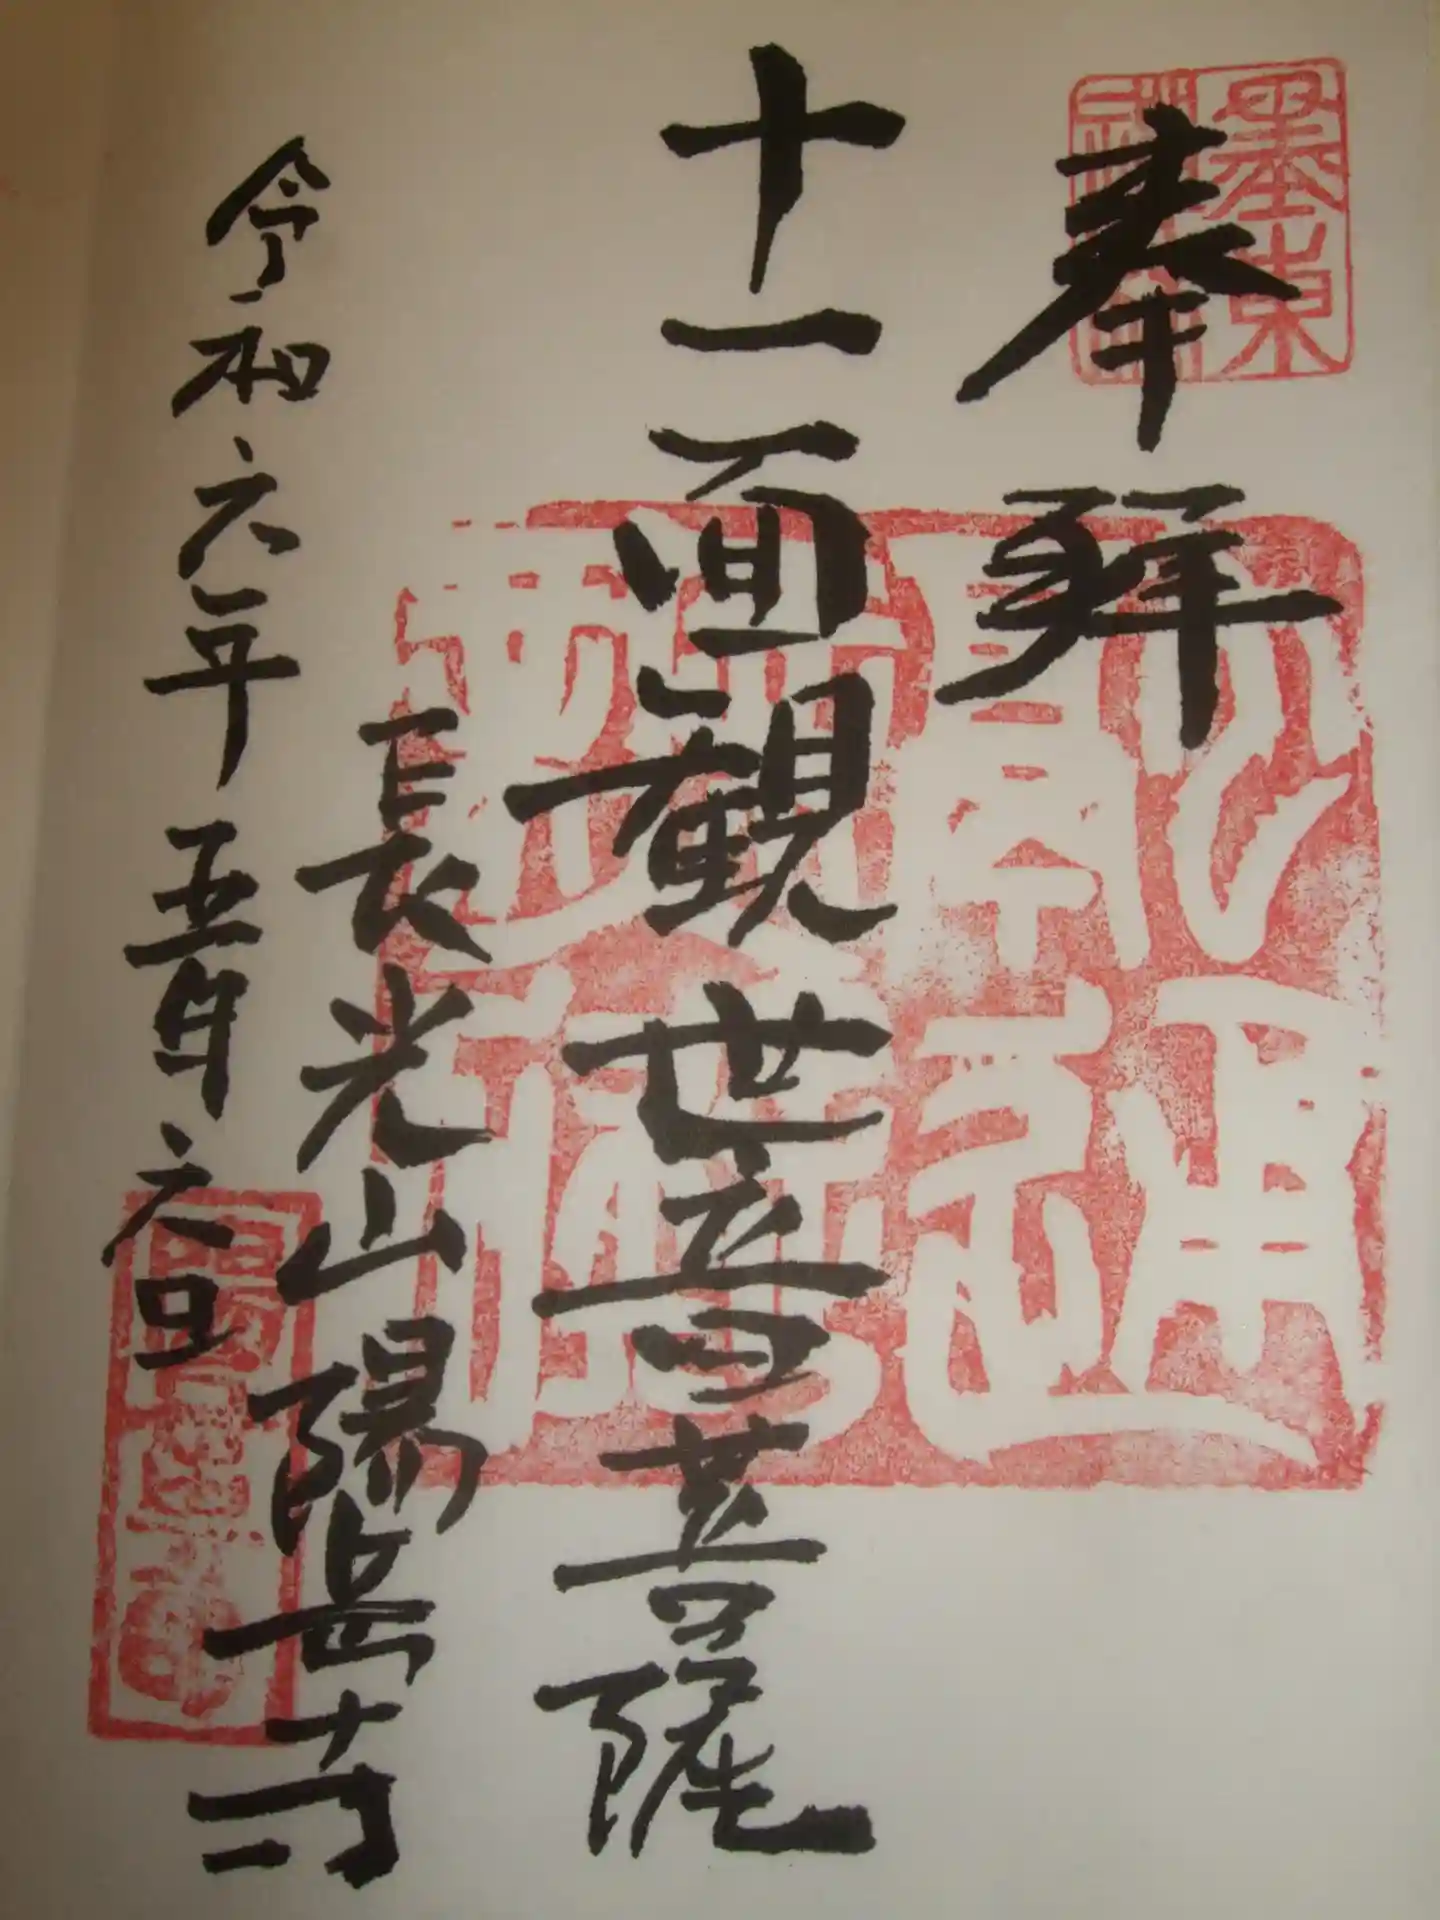 奉拝
十一面観世音菩薩
長光山陽岳寺
令和六年五月六日
墨東
陽岳寺印